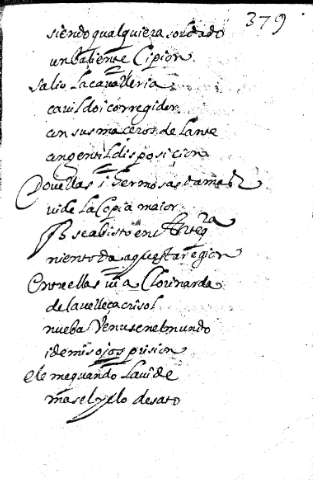 379
siendo qualquiera soldado
un baliente Cipion
salio la cavalleria
cavildo i corregidor
con sus maceros delante
en gentil disposicion
Doncellas i hermosas damas
vide la copia maior
q se a bisto en
niento da aquesta region
Entre ellas vi a Clorinarda
de la velleça crisol
nueba Venus en el mundo
i de mis ojos prision
ele me quando la vi de
mas el yelo desato